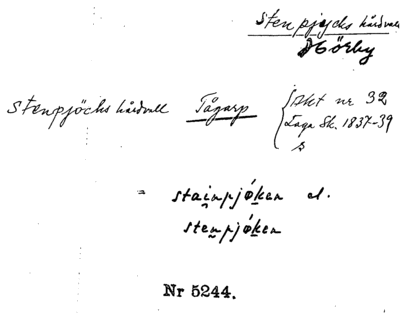 Stenpjycks hårdvall
Hörby
Stenpjöcks hårdvall Tågarp { Akt nr 32
Laga Sk. 1837-39
s
= stai̯npjǿken el.
stenpjǿken
Nr 5244.